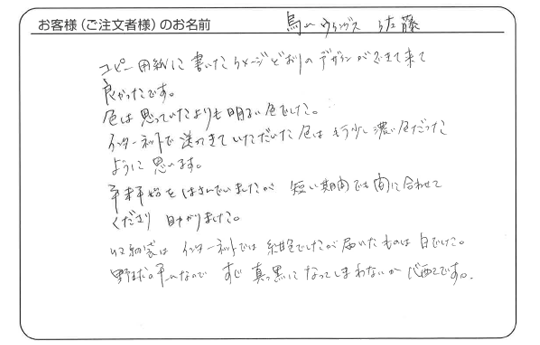 お客様（ご注文者様）のお名前 佐藤
コピー用紙に書いたイメージどおりのデザインができて来て
良かったです。
色は思っていたよりも明るい色でした。
インターネットで送ってきていただいた色は もう少し濃い色だった
ように思います。
年末年始をはさんでいましたが 短い期間でも間に合わせて
くださり 助かりました。
インターネットでは 紺色でしたが 届いたものは 白でした。
野球 なので すぐ 真っ黒に なってしまわないか 心配です。